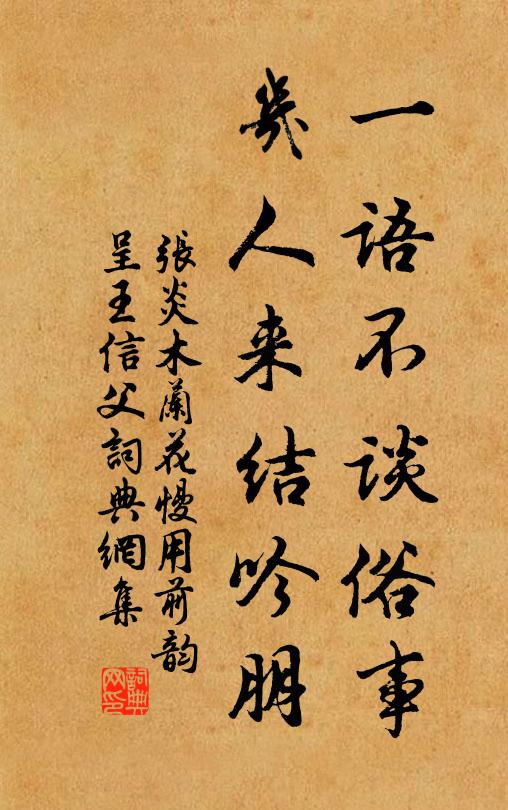 一语不谈俗事
幾人来结吟朋
張炎木蘭花慢用前韵
呈王信父詞典網集
詞典
网印